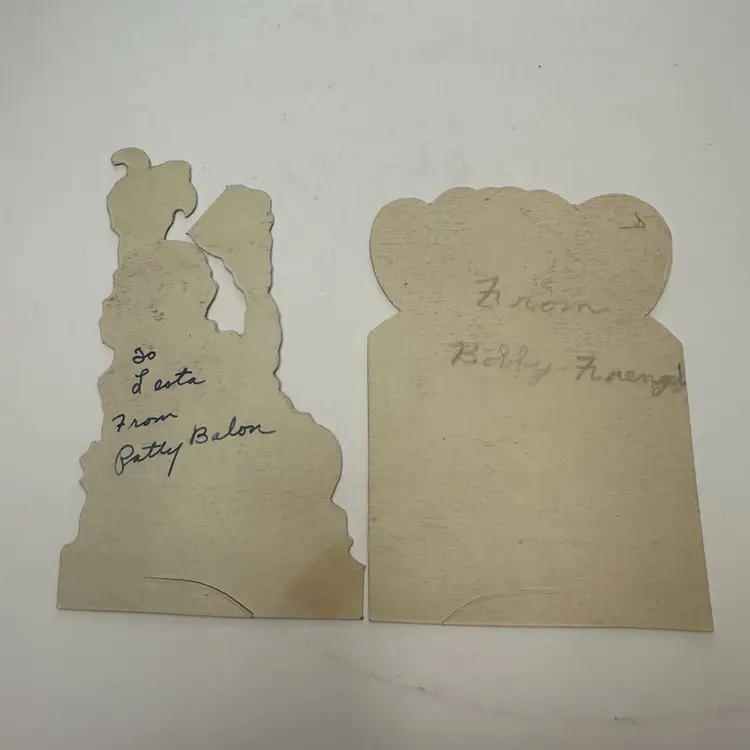 To
Lesta
From
Patty Balon
From
Bobby